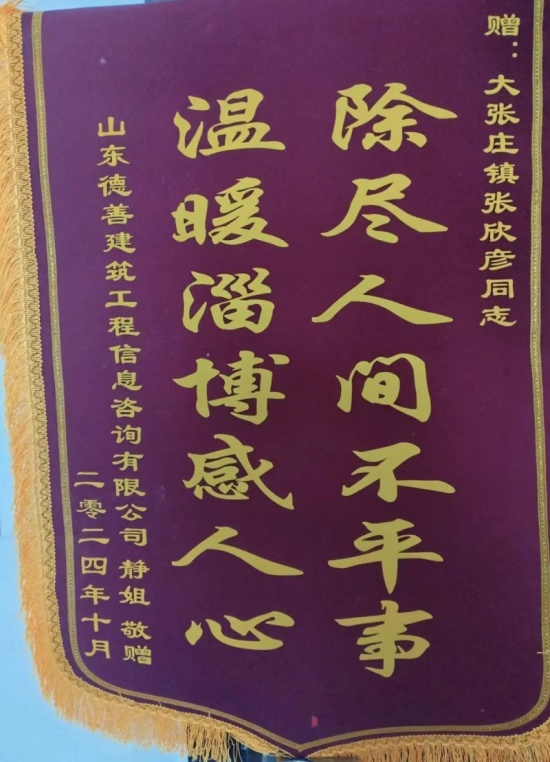 赠：大张庄镇张欣彦同志
除尽人间不平事
温暖淄博感人心
山东德善建筑工程信息咨询有限公司 静姐 敬赠
二零二四年十月